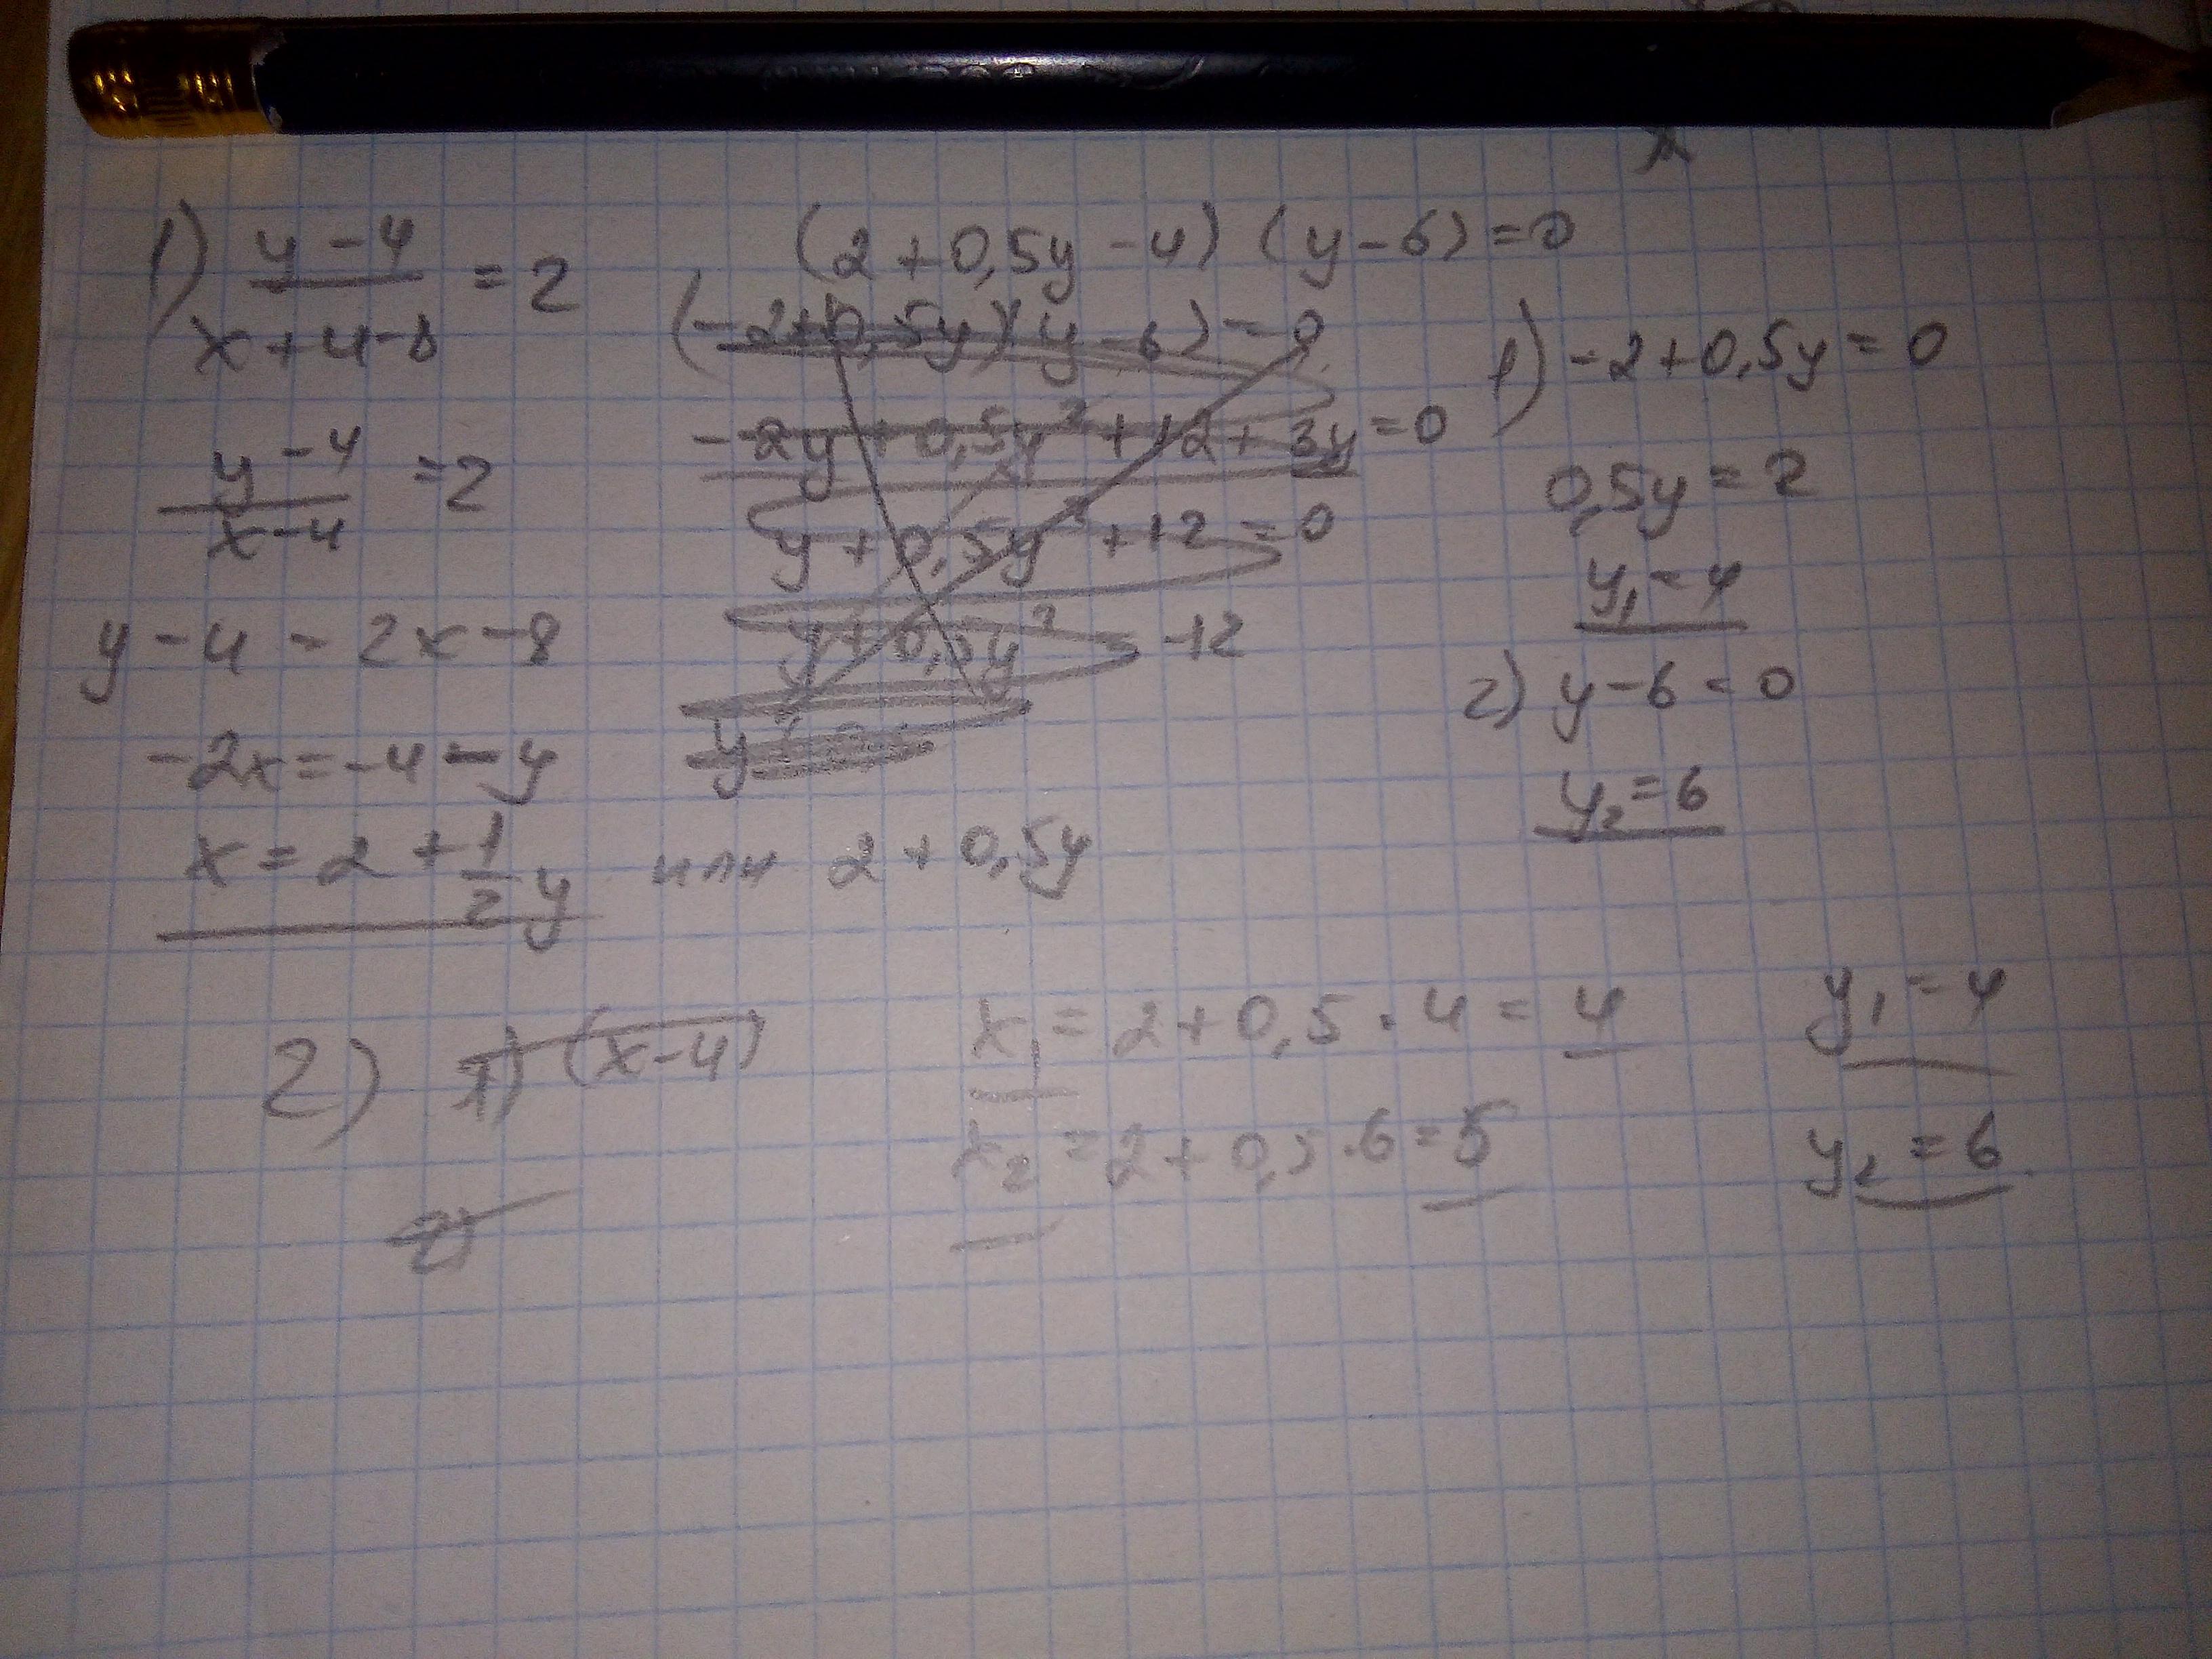 1) (y-4)/(x+4-8) = 2
(y-4)/(x-4) = 2
y-4 = 2x-8
-2x = -4-y
x = 2 + 1/2 y или 2+0,5y
(2+0,5y-4)(y-6)=0
(-2+0,5y)(y-6)=0
-2y+0,5y²+12+3y=0
y+0,5y²+12=0
y+0,5y² = -12
1) -2+0,5y=0
0,5y=2
y₁=4
2) y-6=0
y₂=6
2) 1) (x-4)
2)
x₁=2+0,5·4=4 y₁=4
x₂=2+0,5·6=5 y₂=6
x